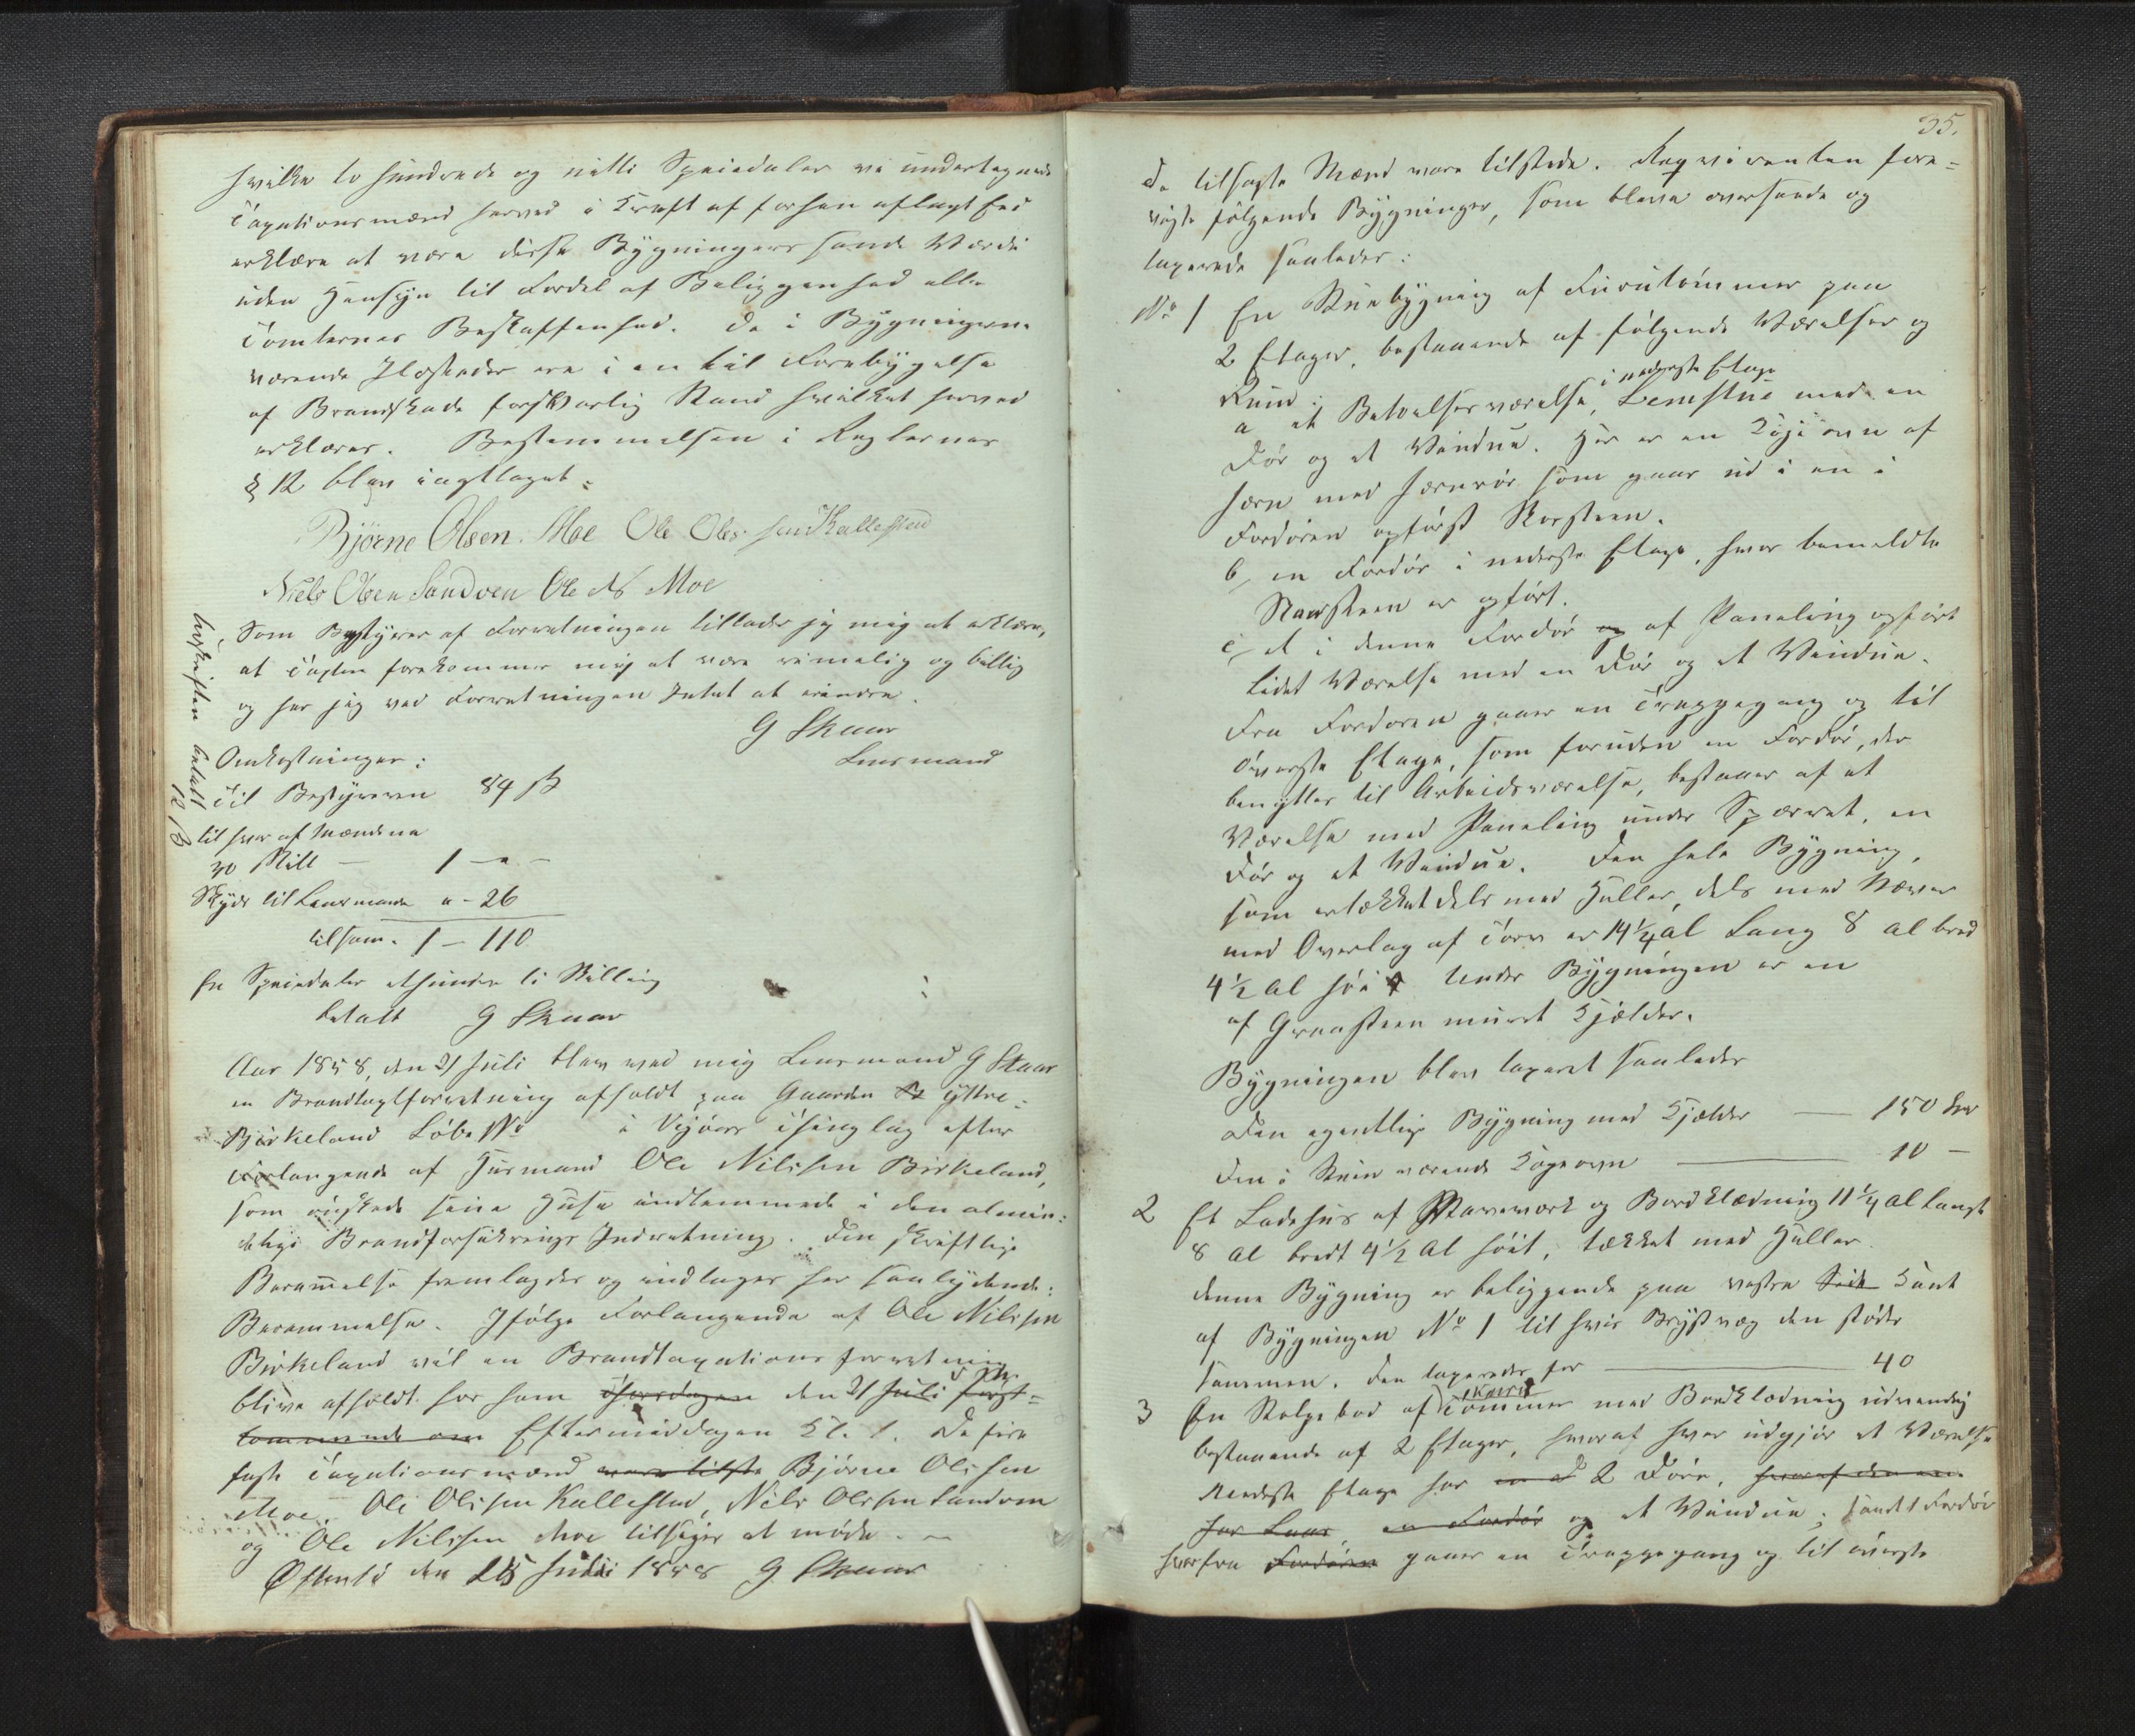 hvilke to hundrede og nitti Speciedaler vi undertegnede
Taxationsmænd herved i Kraft af forhen aflagt Eed
erklære at være disse Bygningers sande Værdi
uden Hensyn til Fordel af Beliggenhed eller
Tomternes Beskaffenhed. De i Bygningerne
værende Ildsteder ere i en til Forebyggelse
af Brandskade forsvarlig Stand hvilket herved
erklæres. Bestemmelsen i Reglernes
§ 12 blev iagttaget.
Bjørne Olsen Moe Ole Olessen Kallestad
Niels Olsen Sandven Ole Ns Moe
Som Bestyrer af Forretningen tillader jeg mig at erklære,
at Taxten forekommer mig at være rimelig og billig
og har jeg ved Forretningen Intet at erindre.
G Skaar
Lensmand
Omkostninger:
Til Bestyreren 84 ß
til hver af Mændene
30 Skill — 1 — " —
Skyds til Lensmanden " - 26
tilsam. 1 — 110
En Speciedaler et hundre ti Skilling
betalt G Skaar
beskriften betalt
12 ß
Aar 1858, den 21 Juli blev ved mig Lensmand G Skaar
en Brandtaxtforretning afholdt paa Gaarden Yttre-
Birkeland Løbe No i Vigøers Thinglag efter
Forlangende af Husmand Ole Nilssen Birkeland,
som ønskede sine Huse indlemmede i den almin-
delige Brandforsikrings Indretning. Den skriftlige
Berammelse fremlagdes og indtages her saalydende:
Berammelse. Ifølge Forlangende af Ole Nilssen
Birkeland vil en Brandtaxationsforretning
blive afholdt hos ham Thorsdagen den 21 Juli først-
kommende om Eftermiddagen Kl. 1. De fire
faste Taxationsmænd vare tilste Bjørne Olssen
Moe, Ole Olssen Kallestad, Nils Olssen Sandven
og Ole Nilssen Moe tilsiges at møde.
Østensø den 15 Juli 1858 G Skaar
35.
De tilsagte Mænd vare tilstede. Reqvirenten fore-
viste følgende Bygninger, som bleve overseede og
taxerede saaledes:
No 1 En Stuebygning af Furutømmer paa
2 Etager, bestaaende af følgende Værelser og
Rum:
i nederste Etage
a et Beboelsesværelse, Lemstue med en
Dør og et Vindue. Her er en Kogeovn af
Jern med Jernrør som gaar ud i en i
Fordøren opført Skorsteen.
b, en Fordør i nederste Etage, hvor bemeldte
Skorsteen er opført.
c, et i denne Fordør og af Paneling opført
lidet Værelse med en Dør og et Vindue.
Fra Fordøren gaaer en Trappegang op til
øverste Etage, som foruden en Fordør, der
benyttes til Arbeidsværelse, bestaaer af et
Værelse med Paneling under Sperret, en
Dør og et Vindue. Den hele Bygning,
som er tækket dels med Heller, dels med Næver
med Overlag af Torv er 14 1/4 al Lang 8 al bred
4 1/2 al høi. Under Bygningen er en
af Graasteen muret Kjelder.
Bygningen blev taxeret saaledes
Den egentlige Bygning med Kjelder — 150 Spd
Den i Stuen værende Kogeovn — 10 —
2 Et Ladehus af Stavværk og Bordklædning 11 1/4 al langt
8 al bredt 4 1/2 al høit, tækket med Heller.
denne Bygning er beliggende paa vestre Side Kant
af Bygningen No 1 til hvis Brystvæg den støder
sammen. Den taxeredes for — 40
3 En Stolpebod af Tømmer med Bordklædning udvendig
bestaaende af 2 Etager, hvoraf hver udgjør et Værelse
Nederste Etage har en D 2 Døre, hvoraf den ene
har Laas en Fordør og et Vindue; samt 1 Fordør
hvorfra Fordøren gaaer en Trappegang op til øverste